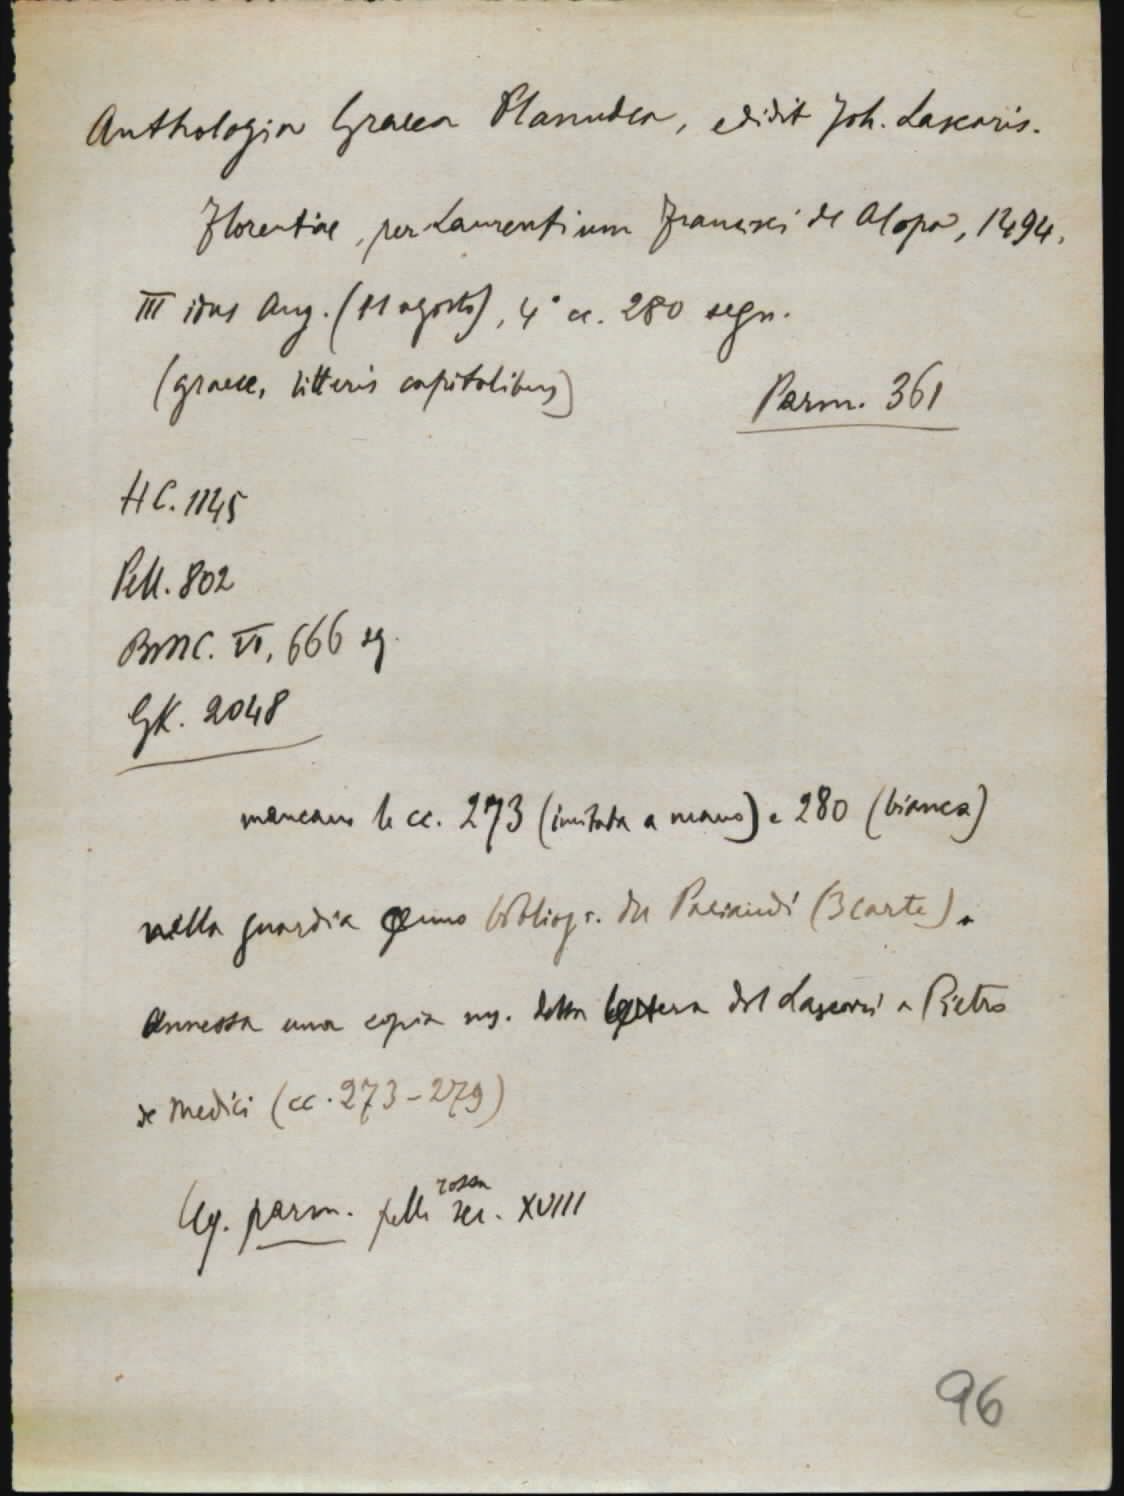 Anthologia Graeca Planudea, edidit Joh. Lascaris.
Florentiae, per Laurentium Francisci de Alopa, 1494,
III idus Aug. (11 agosto), 4° cc. 280 segn.
(graece, litteris capitalibus)
Parm. 361
HC. 1145
Pell. 802
BMC. VI, 666 sg.
GK. 2048
mancano le cc. 273 (imitata a mano) e 280 (bianca)
nella guardia bibliogr. del Paciaudi (3 carte).
Annessa una copia ms. della lettera del Lascaris a Pietro
de Medici (cc. 273-279)
Leg. parm. pelle rossa sec. XVIII
96